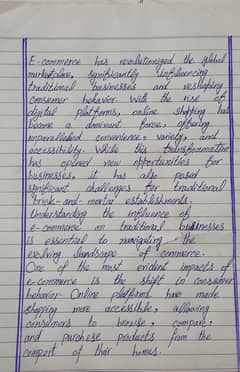 E-commerce has revolutionized the global
marketplace, significantly influencing
traditional businesses and reshaping
consumer behavior. With the rise of
digital platforms, online shopping has
become a dominant force, offering
unparalleled convenience, variety, and
accessibility. While this transformation
has opened new opportunities for
businesses, it has also posed
significant challenges for traditional
brick-and-mortar establishments.
Understanding the influence of
e-commerce on traditional businesses
is essential to navigating the
evolving landscape of commerce.
One of the most evident impacts of
e-commerce is the shift in consumer
behavior. Online platforms have made
shopping more accessible, allowing
consumers to browse, compare,
and purchase products from the
comfort of their homes.